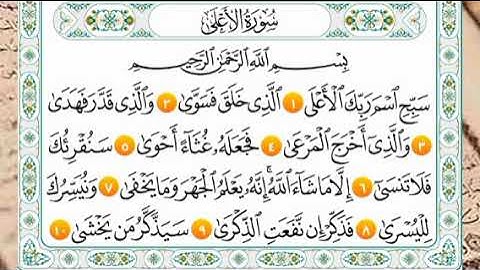 سُورَةُ الأَعْلَىٰ
بِسْمِ اللَّهِ الرَّحْمَٰنِ الرَّحِيمِ
سَبِّحِ اسْمَ رَبِّكَ الْأَعْلَى ١ الَّذِي خَلَقَ فَسَوَّىٰ ٢ وَالَّذِي قَدَّرَ فَهَدَىٰ
٣ وَالَّذِي أَخْرَجَ الْمَرْعَىٰ ٤ فَجَعَلَهُ غُثَاءً أَحْوَىٰ ٥ سَنُقْرِئُكَ
فَلَا تَنسَىٰ ٦ إِلَّا مَا شَاءَ اللَّهُ إِنَّهُ يَعْلَمُ الْجَهْرَ وَمَا يَخْفَىٰ ٧ وَنُيَسِّرُكَ
لِلْيُسْرَىٰ ٨ فَذَكِّرْ إِن نَّفَعَتِ الذِّكْرَىٰ ٩ سَيَذَّكَّرُ مَن يَخْشَىٰ ١٠